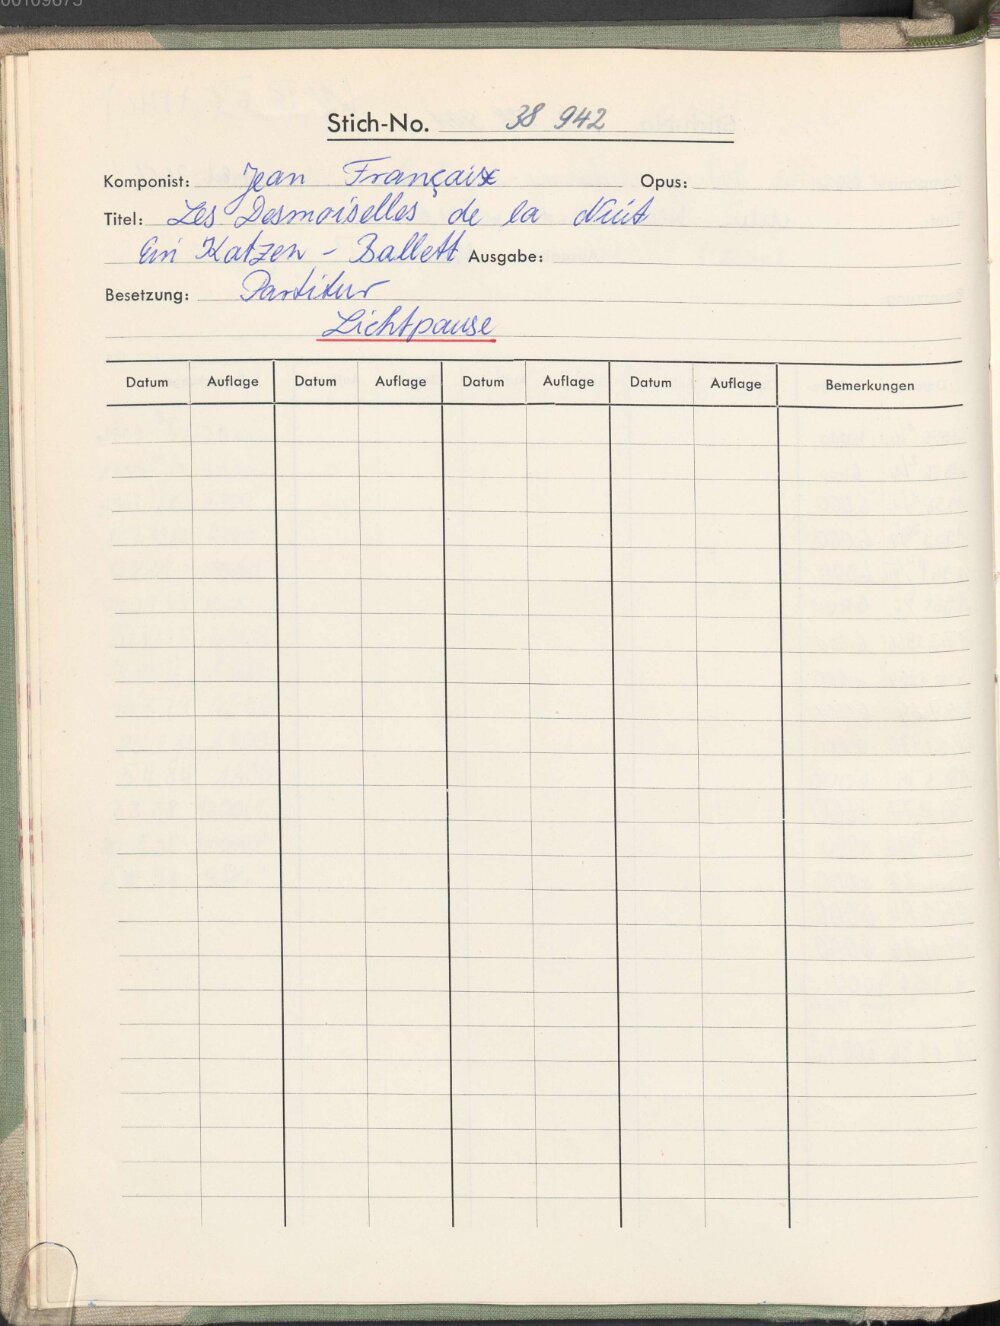 Stich-No. 38 942
Komponist: Jean Françaix Opus:
Titel: Les Desmoiselles de la Nuit
Ein Katzen - Ballett Ausgabe:
Besetzung: Partitur
Lichtpause
Datum Auflage Datum Auflage Datum Auflage Datum Auflage Bemerkungen